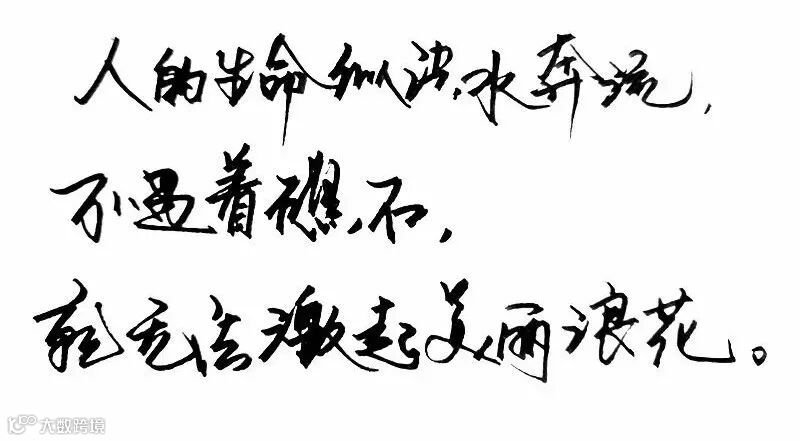 人的生命似洪水奔流，
不遇着礁石，
就无法激起美丽浪花。
大数跨境